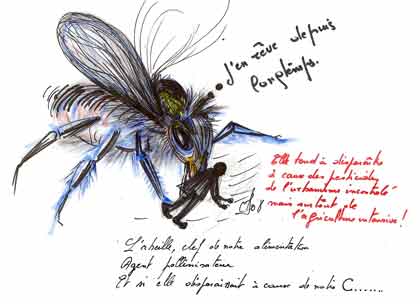 J'en rêve depuis
longtemps.
Elle tend à disparaître
à cause des pesticides
de l'urbanisme incontrolé
mais surtout de
l'agriculture intensive !
08
L'abeille, clef de notre alimentation
Agent pollinisateur
Et si elle disparaissait à cause de notre C.......